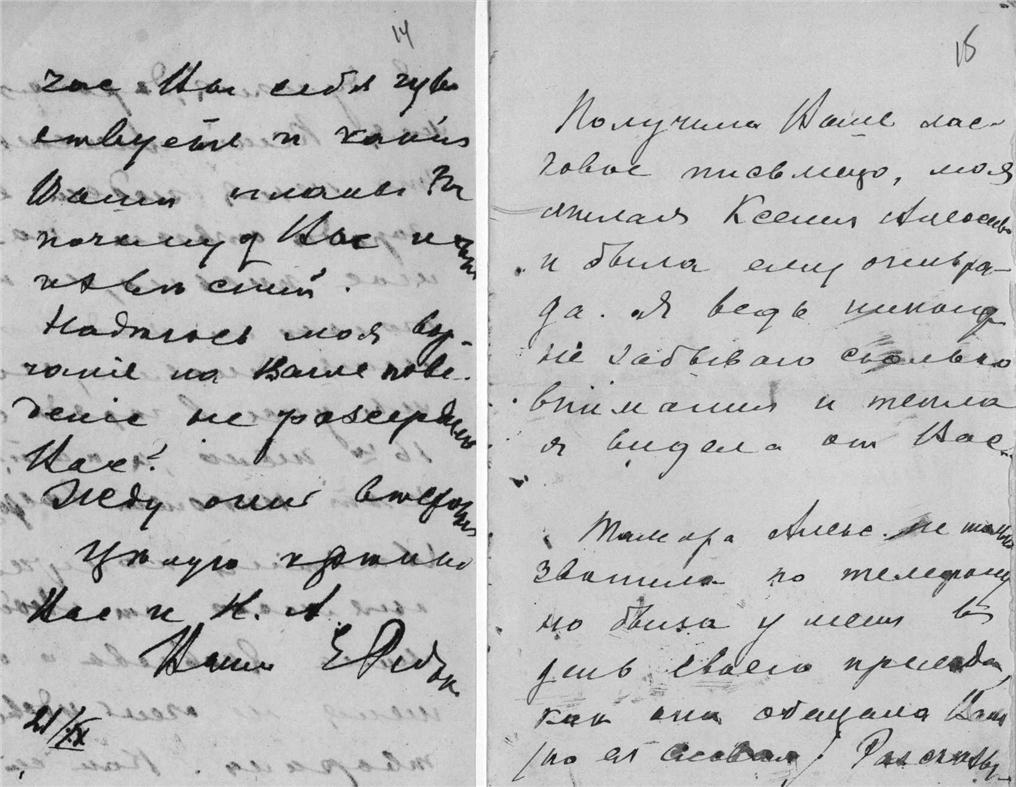 14
час Вы себя чув
ствуете и какiя
Ваши планы
почему у Вас и
Надѣюсь моя вор-
чанiе на Ваше пове-
денiе не разсердило
Вас?
Жду очень
Цѣлую крѣпко
Вас и Н. А.
Ваша Е
21/IX
15
Получила Ваше лас-
ковое письмецо, моя
милая Ксения Алексеев
и была ему очень ра-
да. Я ведь никогд
не забываю сколько
внимания и тепла
я видела от Вас.
Тамара Алекс. не только
звонила по телефону
но была у меня в
день своего приезда,
как она обещала Вам
(по ее словам)